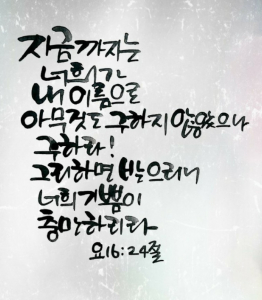 지금까지는
너희가
내 이름으로
아무것도 구하지 않았으나
구하라!
그리하면 받으리니
너희 기쁨이
충만하리라
요16:24절